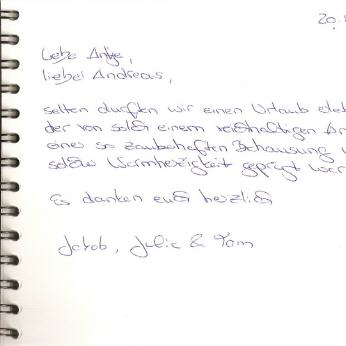 20.
Liebe Antje,
lieber Andreas,
selten durften wir einen Urlaub
der von solch einem reichhaltigen
einer so zauberhaften Behausung
solch Warmherzigkeit geprägt war
Es danken euch herzlich
Jakob, Julie & Tom